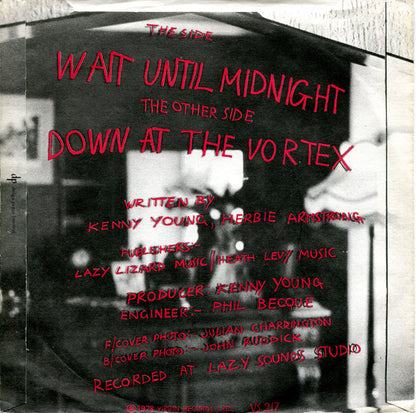 THE SIDE
WAIT UNTIL MIDNIGHT
THE OTHER SIDE
DOWN AT THE VORTEX
WRITTEN BY
KENNY YOUNG, HERBIE ARMSTRONG
PUBLISHERS:-
LAZY LIZARD MUSIC/HEATH LEVY MUSIC
PRODUCER: KENNY YOUNG
ENGINEER:- PHIL BECQUE
F/COVER PHOTO:- JULIAN CHARRINGTON
B/COVER PHOTO:- JOHN RUDDICK
RECORDED AT LAZY SOUNDS STUDIO
© 1978 VIRGIN RECORDS LTD. VS 217